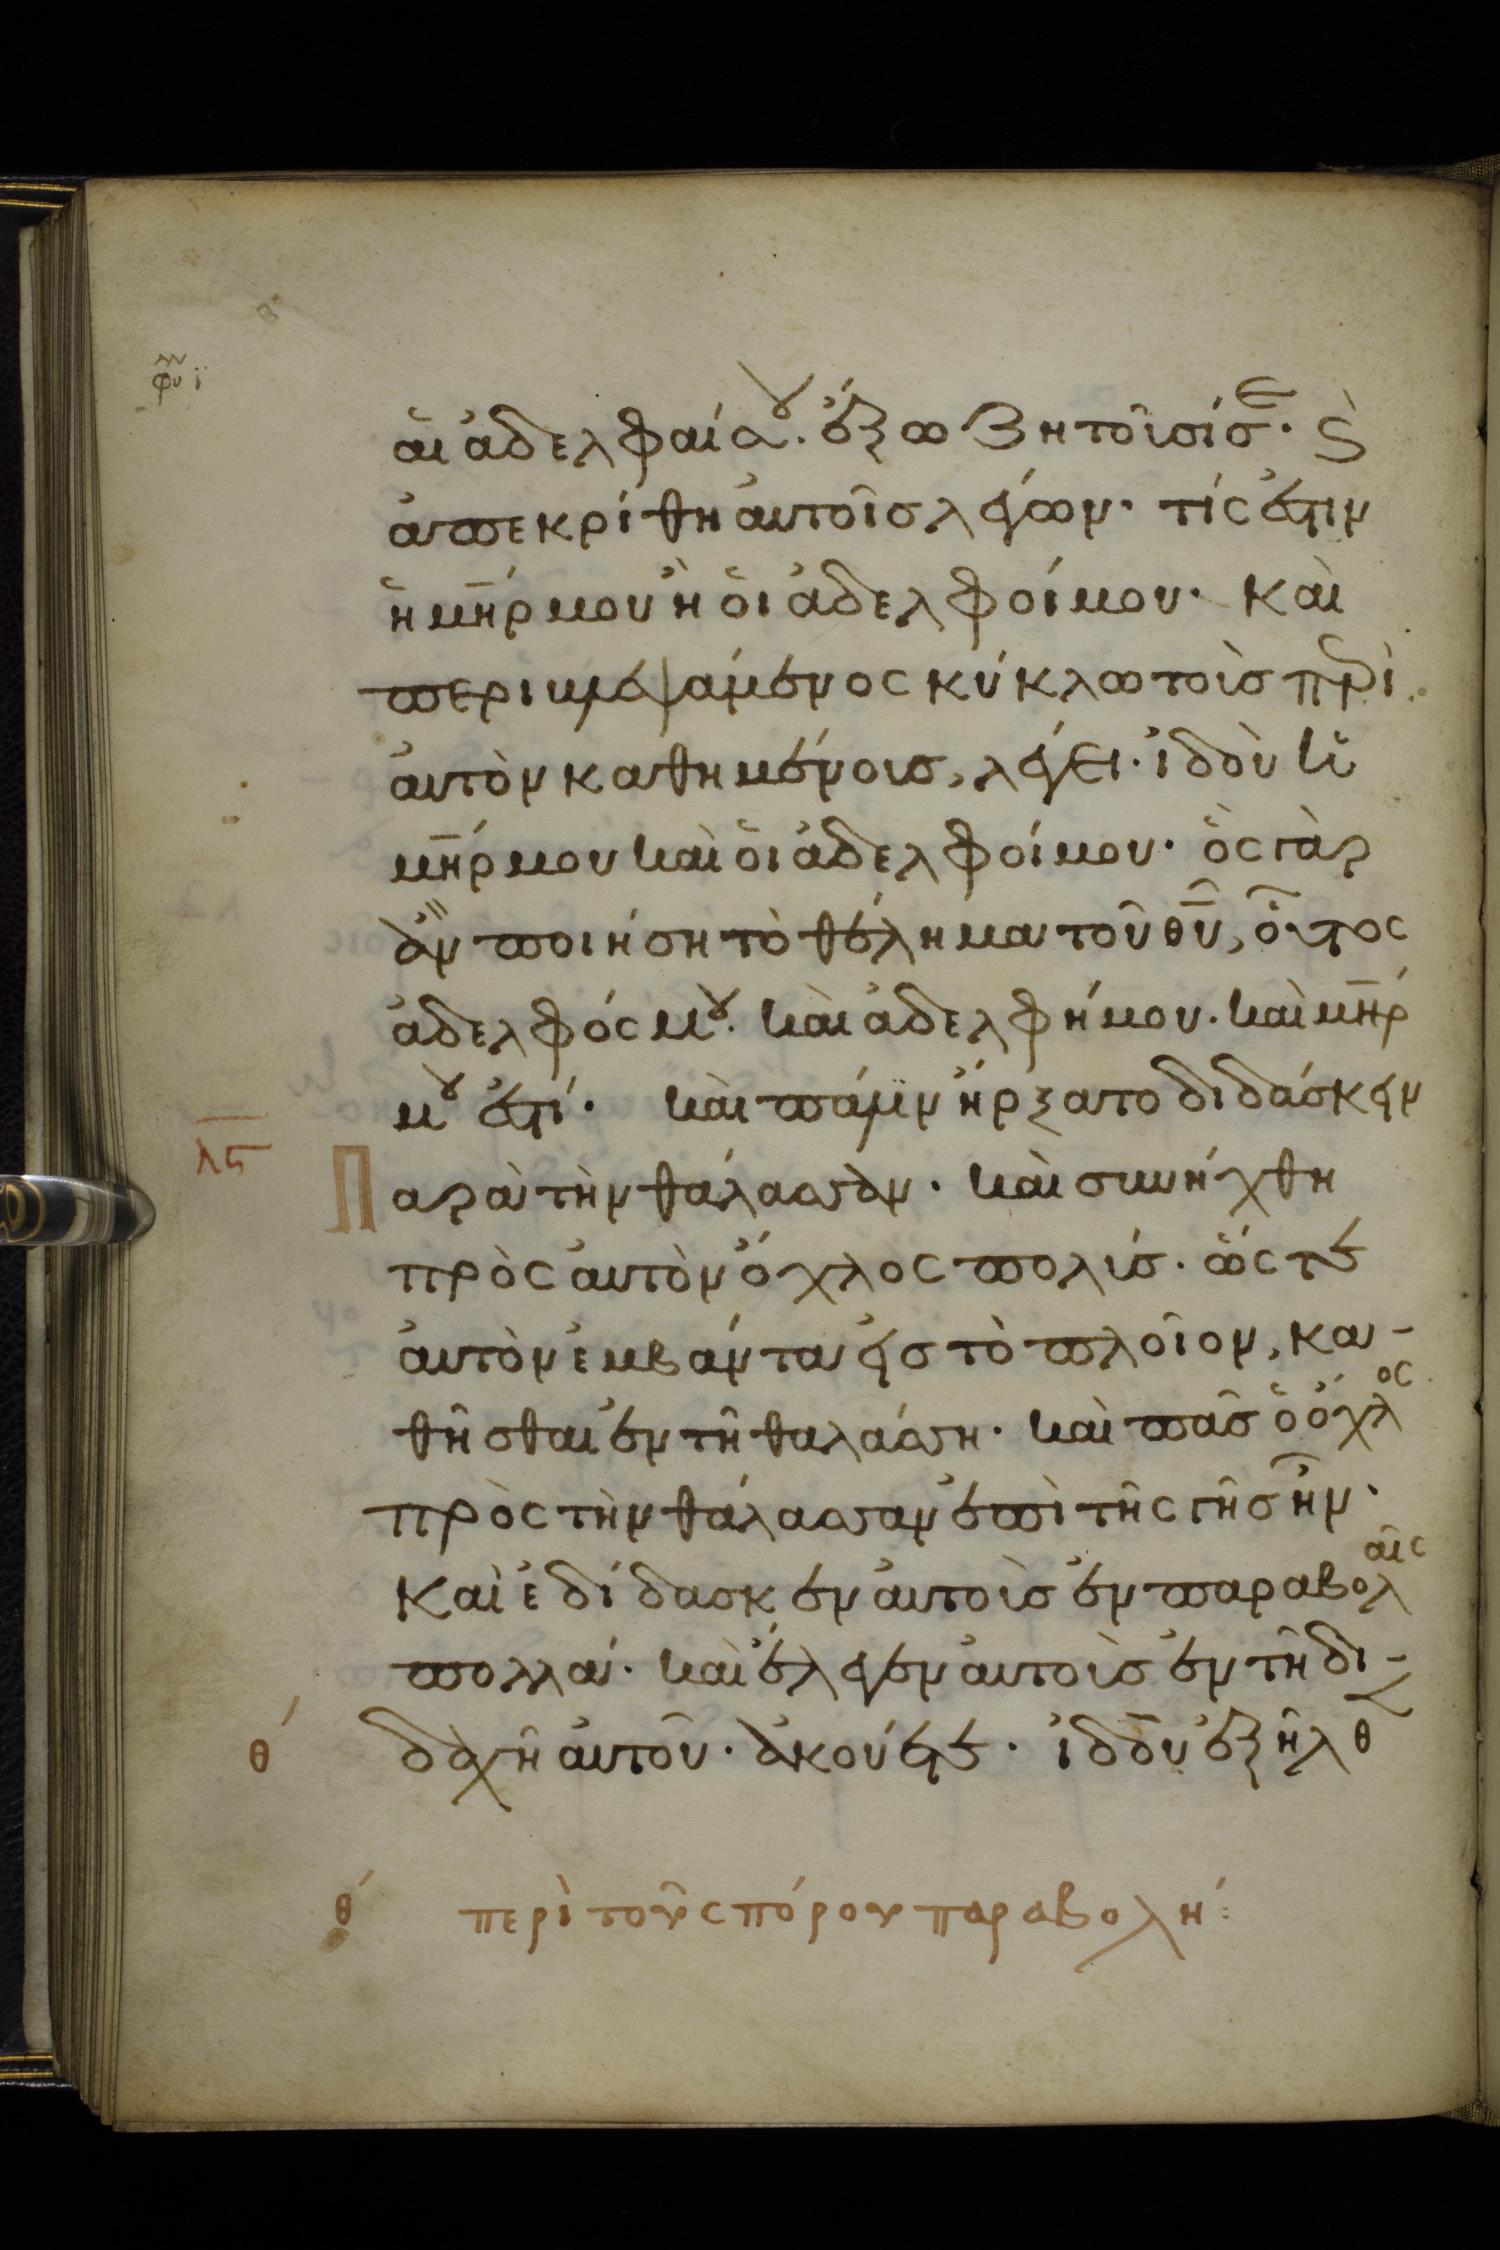 αἱ ἀδελφαί σου. ἔξω ζητοῦσί σε· καὶ
ἀπεκρίθη αὐτοῖς λέγων· τίς ἐστιν
ἡ μη̅ρ μου ἢ οἱ ἀδελφοί μου· καὶ
περιβλεψάμενος κύκλω τοὺς περὶ
αὐτὸν καθημένους, λέγει· ἰδοὺ ἡ
μη̅ρ μου καὶ οἱ ἀδελφοί μου· ὃς γὰρ
ἂν ποιήση τὸ θέλημα τοῦ θυ̅, οὗτος
ἀδελφός μου. καὶ ἀδελφή μου. καὶ μη̅ρ
μου ἐστί· καὶ πάλιν ἤρξατο διδάσκειν
λϛ Παρὰ τὴν θάλασσαν· καὶ συνήχθη
πρὸς αὐτὸν ὄχλος πολύς· ὥστε
αὐτὸν ἐμβάντα εἰς τὸ πλοῖον, κα-
θῆσθαι ἐν τῆ θαλάσση· καὶ πᾶς ὁ ὄχλος
πρὸς τὴν θάλασσαν ἐπὶ τῆς γῆς ἦν·
Καὶ ἐδίδασκεν αὐτοὺς ἐν παραβολαῖς
πολλά· καὶ ἔλεγεν αὐτοῖς ἐν τῆ δι-
θ´ δαχῆ αὐτοῦ· ἀκούετε· ἰδοὺ ἐξῆλθ
θ´ περὶ τοῦ σπόρου παραβολή: